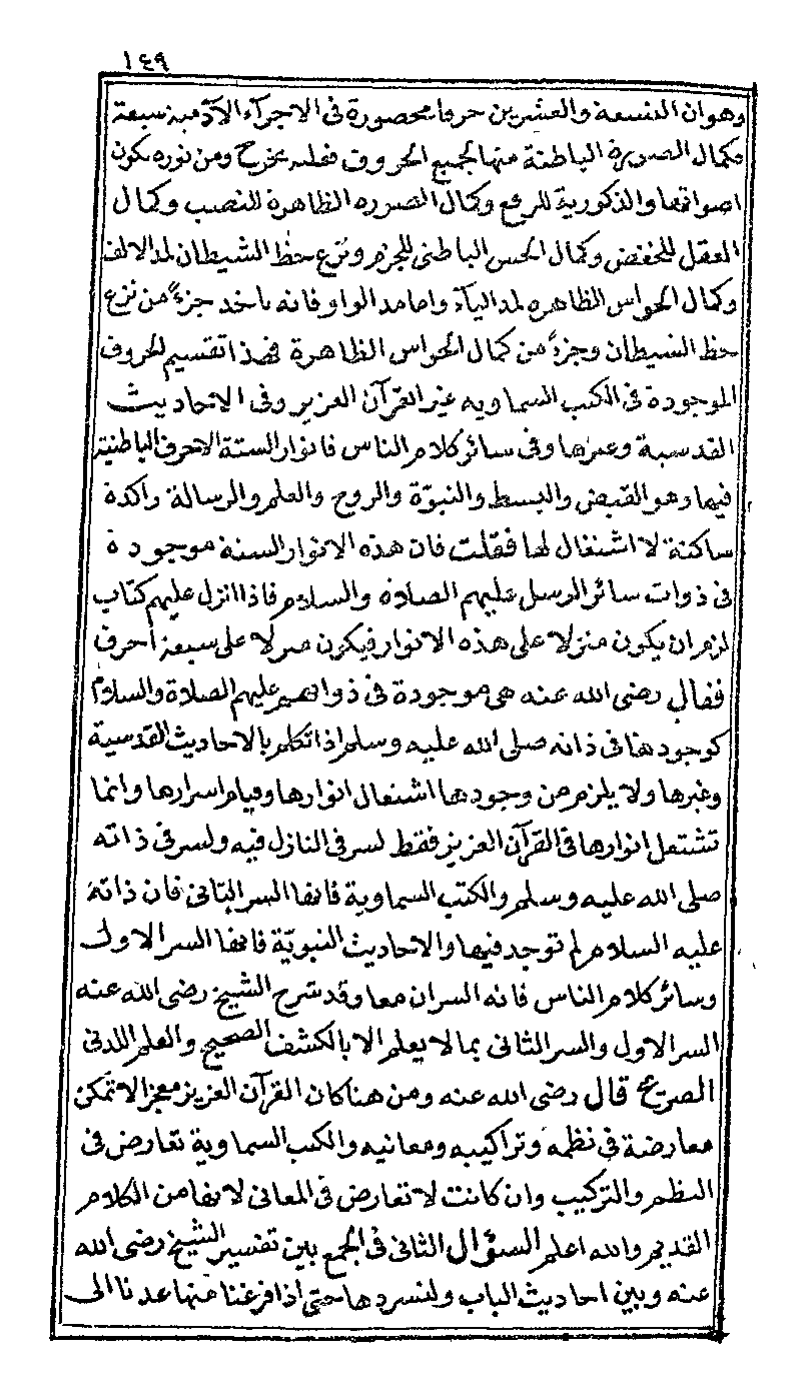 ١٤٩
وهو ان التسعة والعشرين حرفا محصورة فى الاجزاء الآدمية سبعة
فكمال الصورة الباطنة منها لجميع الحروف فعليه يخرج ومن نوره يكون
اصواتها والذكورية للرفع وكمال الصوره الظاهرة للنصب وكمال
العقل للخفض وكمال الحس الباطنى للجزم ونزع حظ الشيطان لمد الالف
وكمال الحواس الظاهره لمد اليآء واما مد الواو فانه ياخد جزءً من نزع
حظ الشيطان وجزءً من كمال الحواس الظاهرة فهذا تقسيم لحروف
الموجودة فى الكتب السماويه غير القرآن العزيز وفى الاحاديث
القدسية وغيرها وفى سائر كلام الناس فانوار الستة الاحرف الباطنية
فيها وهو القبض والبسط والنبوّة والروح والعلم والرسالة راكدة
ساكنة لا اشتعال لها فقلت فان هذه الانوار الستة موجودة
فى ذوات سائر الرسل عليهم الصلاة والسلام فاذا انزل عليهم كتاب
لزم ان يكون منزلا على هذه الانوار فيكون منزلا على سبعة احرف
فقال رضى الله عنه هى موجودة فى ذواتهم عليهم الصلاة والسلام
كوجودها فى ذاته صلى الله عليه وسلم اذا تكلم بالاحاديث القدسية
وغيرها ولا يلزم من وجودها اشتعال انوارها وقيام اسرارها وانما
تشتعل انوارها فى القرآن العزيز فقط لسر فى النازل فيه ولسر فى ذاته
صلى الله عليه وسلم والكتب السماوية فاتها السر الثانى فان ذاته
عليه السلام لم توجد فيها والاحاديث النبويّة فاتها السر الاول
وسائر كلام الناس فاته السران معا وقد شرح الشيخ رضى الله عنه
السر الاول والسر الثانى بما لا يعلم الا بالكشف الصحيح والعلم اللدنى
الصريح قال رضى الله عنه ومن هنا كان القرآن العزيز معجزا لا تمكن
معارضة فى نظمه وتراكيبه ومعانيه والكتب السماوية تعارض فى
النظم والتركيب وان كانت لا تعارض فى المعانى لانها من الكلام
القديم والله اعلم السؤال الثانى فى الجمع بين تفسير الشيخ رضى الله
عنه وبين احاديث الباب ولنسردها حتى اذا فرغنا منها عدنا الى